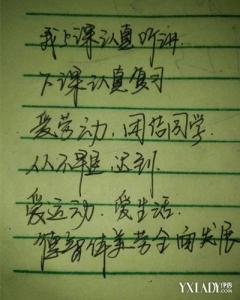 我上课认真听讲.
下课认真复习
爱劳动,团结同学.
从不早退迟到.
爱运动.爱生活.
德智体美劳全面发展
YXLADY伊秀
.com